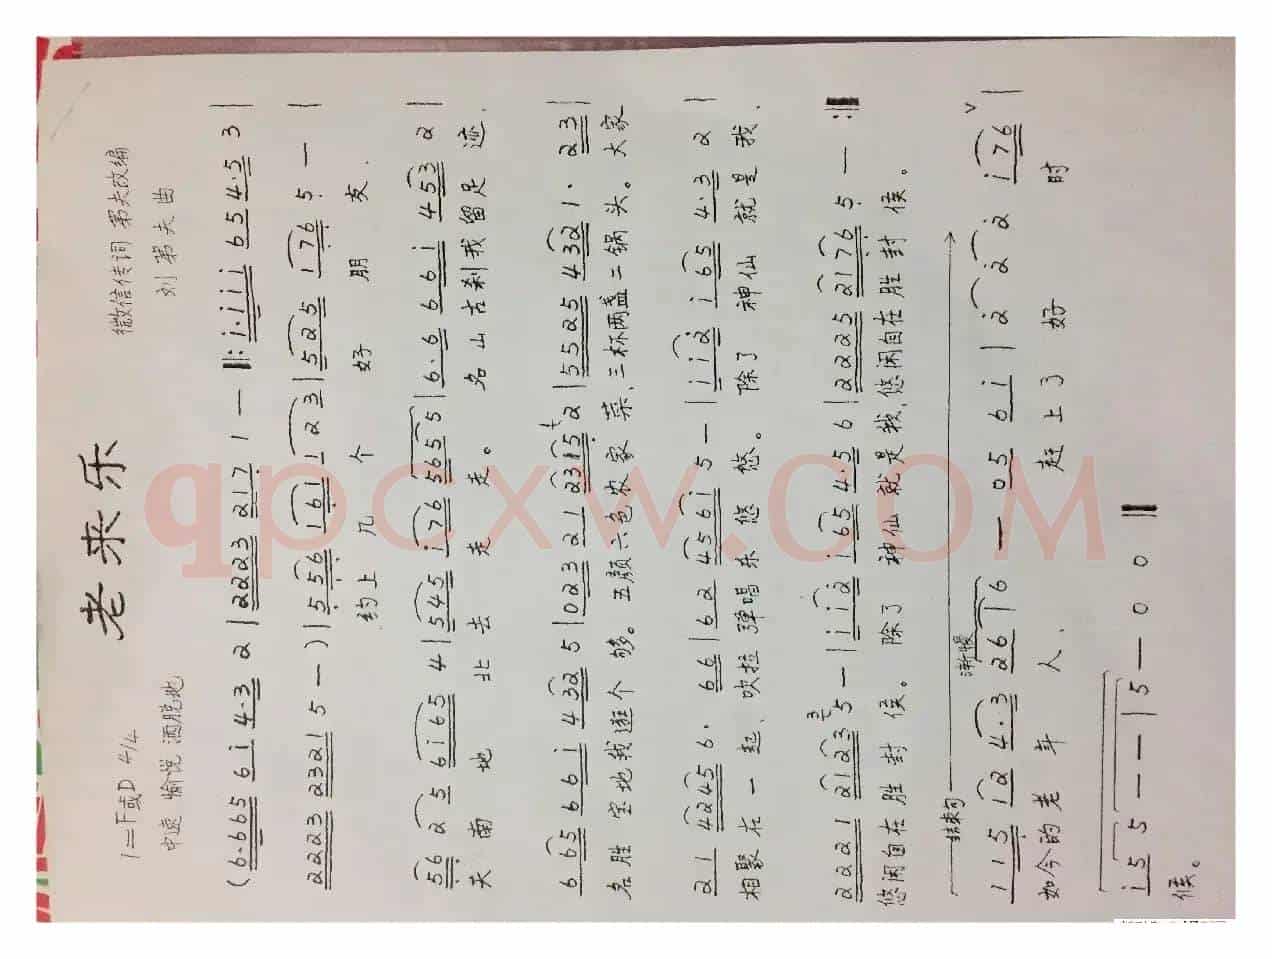 老来乐
1=F或D 4/4
微信传词 第夫改编
中速 愉悦 洒脱地
刘第夫 曲
(6·665 6i 4·3 2 | 2223 217 1 — ‖: i·iii 65 4·5 3 |
2223 2321 5 — ) | 5 56 161 1 2 3 | 525 176 5 — |
约上 几 个 好 朋 友.
56 2 5 6i65 4 | 545 i76 5655 5 | 6·6 66i 453 2 |
天 南 地 北 去 走 走。 名 山 古刹 我 留 足 迹.
6 65 66i 432 5 | 023 21 2315 2 | 5525 432 1· 23 |
名胜 宝地我逛个 够。 五颜六色农家 菜、三杯两盏二锅 头。 大家
21 4245 6· 66 | 62 456i 5 — | ii2 i65 4·3 2 |
相聚在 一 起、 吹拉弹唱乐 悠 悠。 除了 神仙 就是 我.
222 1 2123 5 — | ii2 i65 4·5 6 | 2225 2176 5 — :‖
悠闲自在胜 封 侯。 除了 神仙 就是我,悠闲自在胜 封 侯。
结束句 渐慢
115 12 4·3 26 | 6 — 05 6i | 2 2 2 i76 |
如今的 老 年 人、 赶 上了 好 时
i5 5 — — | 5 — 0 0 ‖
候。
qpcxw.COM